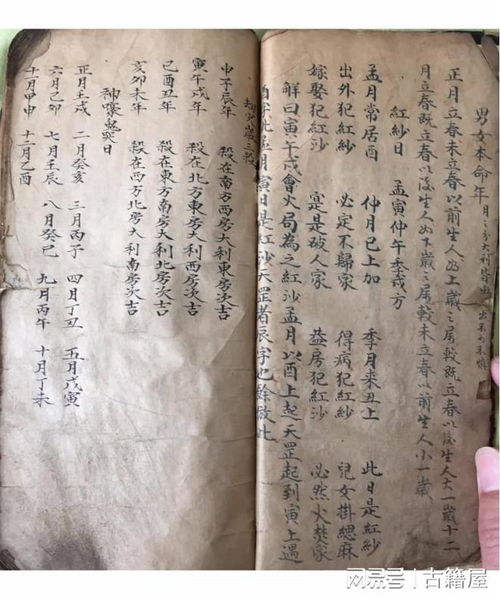 男女本命年
正月立春未立春以前生人必上歲之屠較既立春以後生人大一歲十二
月立春既立春以後生人必下歲之屠較未立春以前生人小一歲
紅紗日 孟寅仲午季戌方
孟月常居酉 仲月巳上加 季月來丑上 此日是紅紗
出外犯紅紗 必定不歸家 得病犯紅紗 兒女掛緦麻
嫁娶犯紅沙 定是破人家 益房犯紅沙 必然火焚家
解曰寅午戌會火局為之紅沙孟月以酉上起天罡起到寅上遇
酉字此孟月寅日是紅沙天罡者辰字也餘倣此
三殺
申子辰年 殺在南方西房大利東房次吉
寅午戌年 殺在北方東房大利西房次吉
巳酉丑年 殺在東方南房大利北房次吉
亥卯未年 殺在西方北房大利南房次吉
神嚎鬼哭日
正月壬戌 二月癸亥 三月丙子 四月丁丑 五月戊寅
六月己卯 七月壬辰 八月癸巳 九月丙午 十月丁未
十一月甲申 十二月乙酉
网易号 | 古籍屋